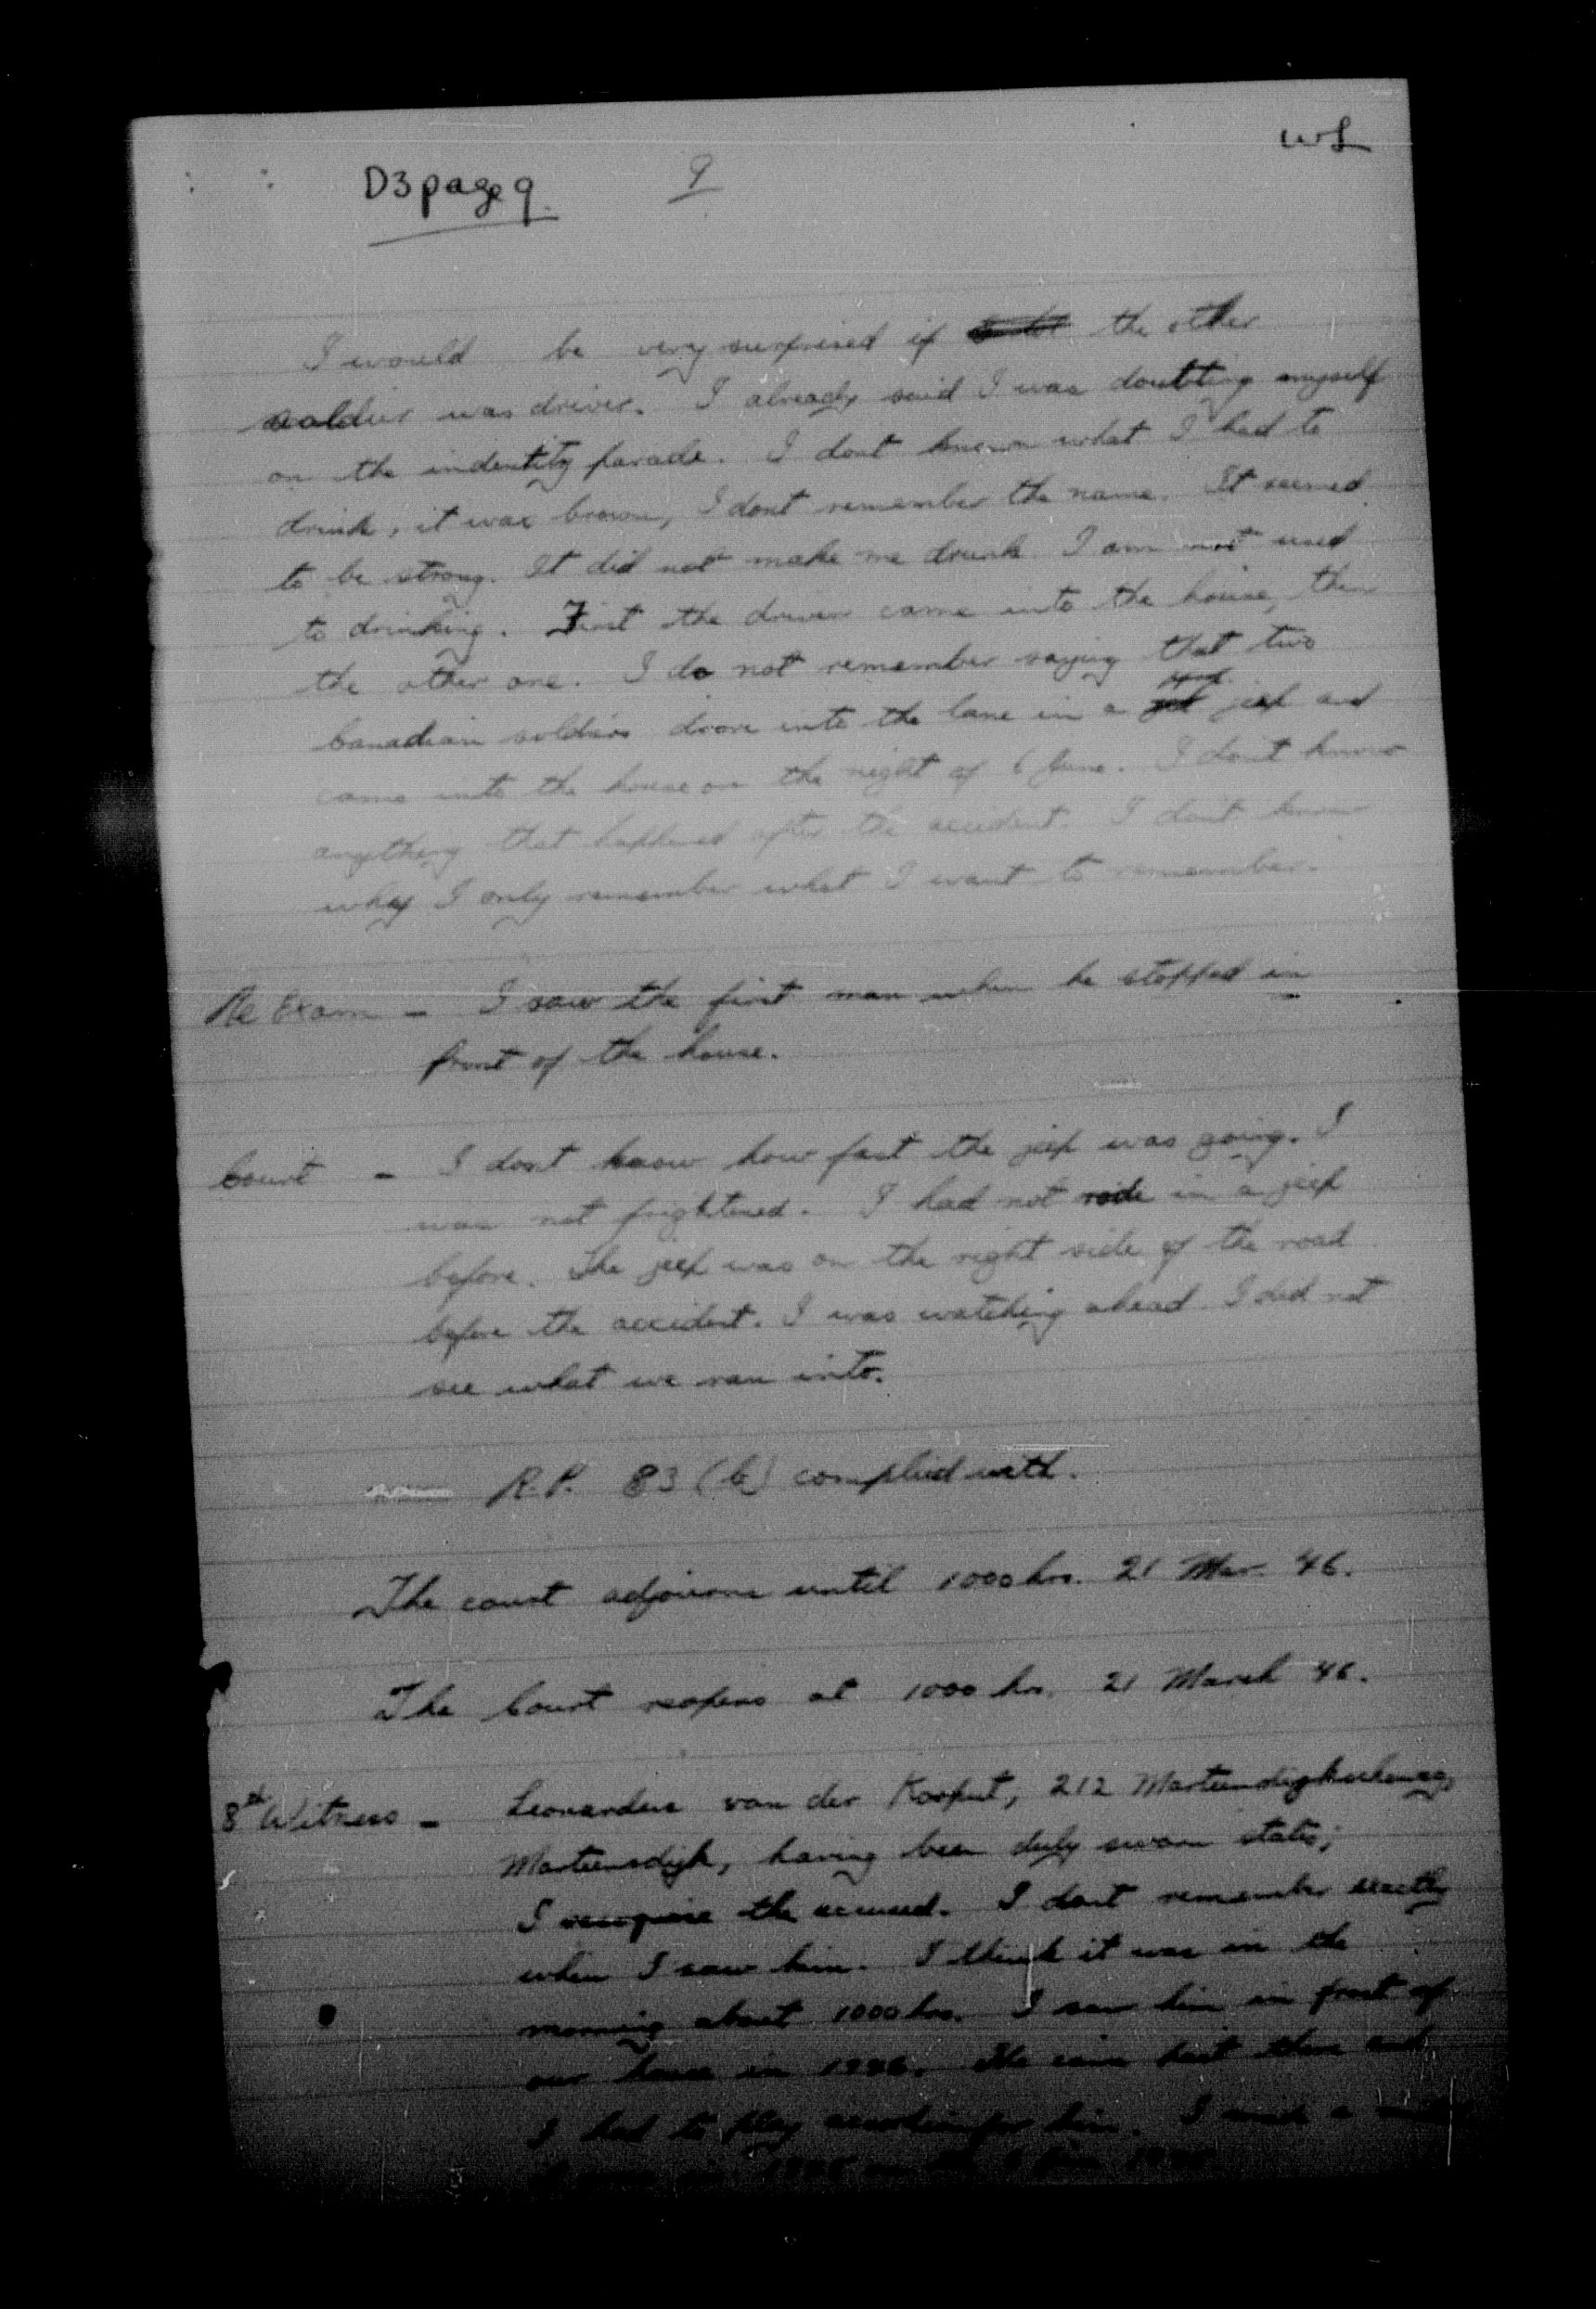 WL
D3 page 9.
9
I would be very surprised if the other
soldier was driver. I already said I was doubting myself
on the indentity parade. I dont know what I had to
drink, it was brown, I dont remember the name. It seemed
to be strong. It did not make me drunk. I am not used
to drinking. First the driver came into the house, then
the other one. I do not remember saying that two
Canadian soldiers drove into the lane in a jeep and
came into the house on the night of 6 June. I don't know
anything that happened after the accident. I don't know
why I only remember what I want to remember.
Re Exam - I saw the first man when he stopped in
front of the house.
Court - I dont know how fast the jeep was going. I
was not frightened. I had not rode in a jeep
before. The jeep was on the right side of the road
before the accident. I was watching ahead. I did not
see what we ran into.
R.P. 83 (b) complied with.
The court adjourns until 1000 hrs. 21 Mar. 46.
The Court reopens at 1000 hrs. 21 March 46.
8th Witness - Leonardus van der Korput, 212
Martensdijk, having been duly sworn states;
I recognise the accused. I dont remember exactly
when I saw him. I think it was in the
morning about 1000 hrs. I saw him in front of
our house in 1946. He came past there and
I had to play him. I made a